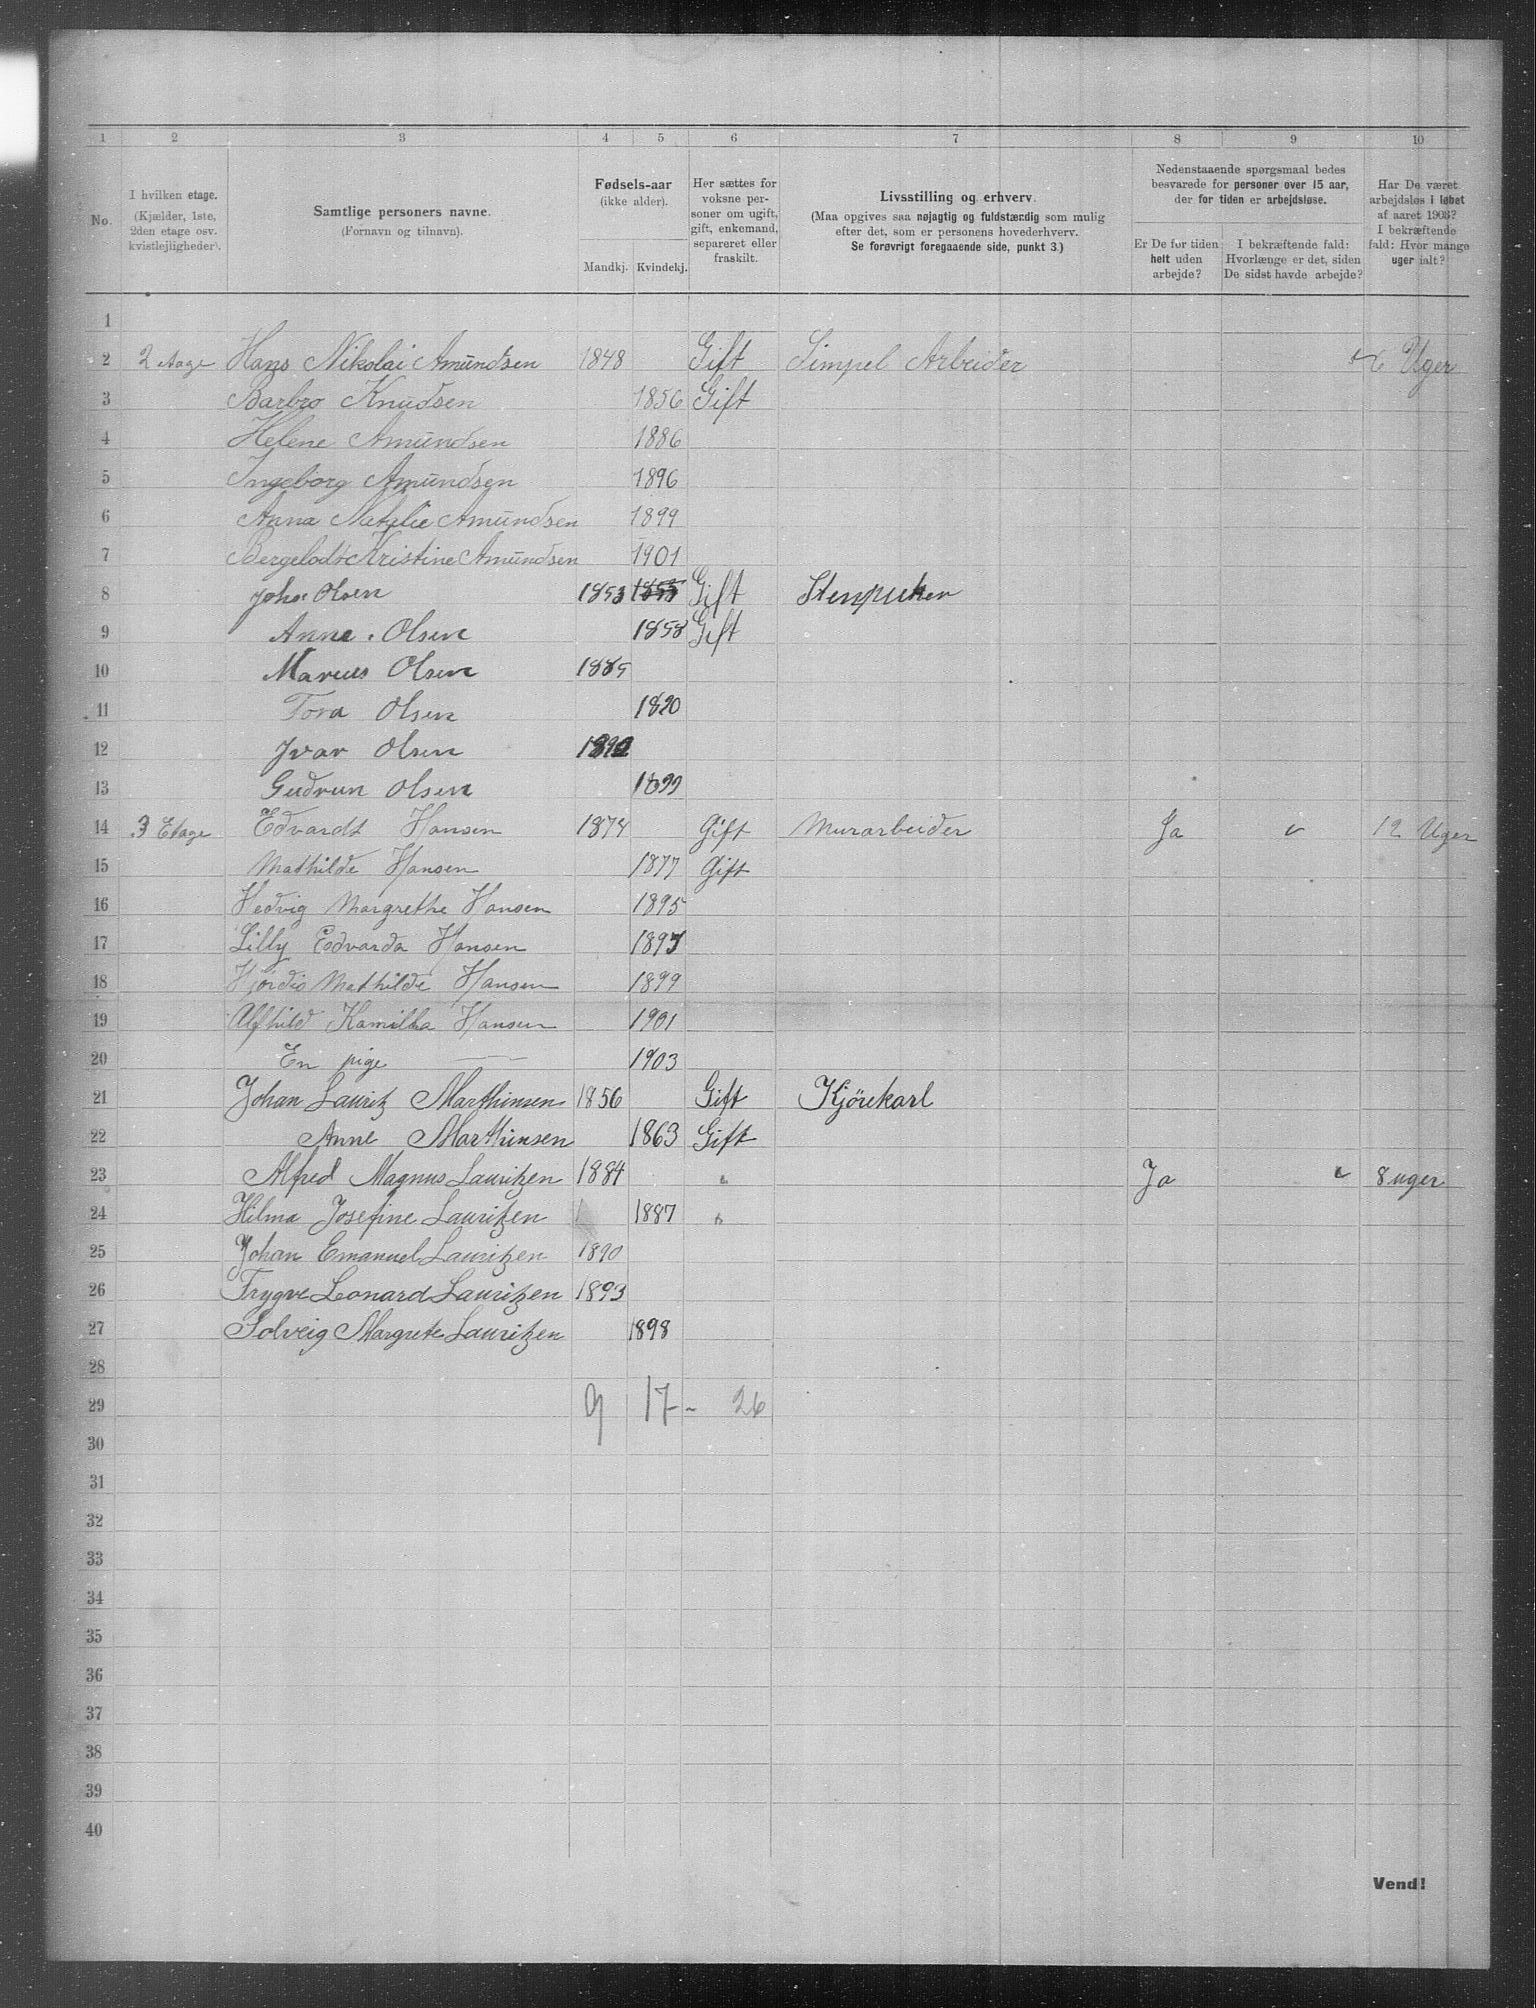 1 2 3 4 5 6 7 8 9 10
No.
I hvilken etage.
(Kjælder, 1ste, 2den etage osv. kvistlejligheder).
Samtlige personers navne.
(Fornavn og tilnavn).
Fødsels-aar
(ikke alder).
Mandkj. Kvindekj.
Her sættes for voksne personer om ugift, gift, enkemand, separeret eller fraskilt.
Livsstilling og erhverv.
(Maa opgives saa nøjagtig og fuldstændig som mulig
efter det, som er personens hovederhverv.
Se forøvrigt foregaaende side, punkt 3.)
Nedenstaaende spørgsmaal bedes
besvarede for personer over 15 aar,
der for tiden er arbejdsløse.
Er De for tiden
helt uden
arbejde?
I bekræftende fald:
Hvorlænge er det, siden
De sidst havde arbejde?
Har De været
arbejdsløs i løbet
af aaret 1903?
I bekræftende
fald: Hvor mange
uger ialt?
1
2 2 Aage Hans Nikolai Amundsen 1848 Gift Simpel Arbeider Uger
3 Barbro Knudsen 1856 Gift
4 Helene Amundsen 1886
5 Ingeborg Amundsen 1896
6 Anna Natalie Amundsen 1899
7 Kristine Amundsen 1901
8 Olsen 1853 1853 Gift
9 Anne Olsen 1858 Gift
10 Marcus Olsen 1885
11 Tora Olsen 1890
12 Ivar Olsen
13 Gudrun Olsen 1899
14 3 Etage Edvardt Hansen 1874 Gift Murarbeider Ja 12 Uger
15 Mathilde Hansen 1877 Gift
16 Hedvig Margrethe Hansen 1895
17 Lilly Edvarda Hansen 1897
18 Hjørdis Mathilde Hansen 1899
19 Alfhild Kamilla Hansen 1901
20 En pige — 1903
21 Johan Lauritz Marthinsen 1856 Gift Kjørekarl
22 Anne Marthinsen 1863 Gift
23 Alfred Magnus Lauritzen 1884 " Ja 8 uger
24 Hilma Josefine Lauritzen 1887 "
25 Johan Emanuel Lauritzen 1890
26 Trygve Leonard Lauritzen 1893
27 Solveig Margrete Lauritzen 1898
28
29 9 17 - 26
30
31
32
33
34
35
36
37
38
39
40
Vend!